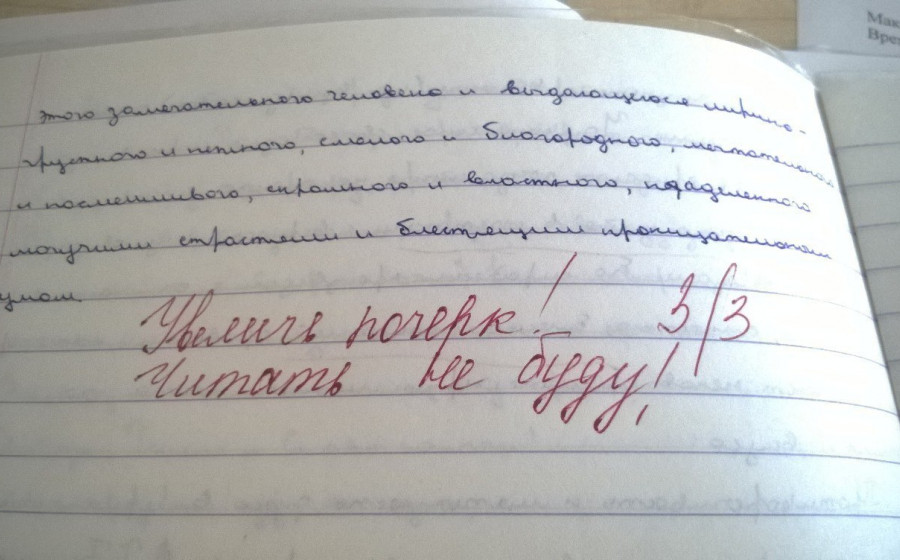 Мак
Врем
этого замечательного человека и выдающегося лирика -
грустного и нежного, смелого и благородного, мечтательного
и насмешливого, скромного и властного, наделенного
могучими страстями и блестящим проницательным
умом
Увеличь почерк! 3/3
Читать не буду!